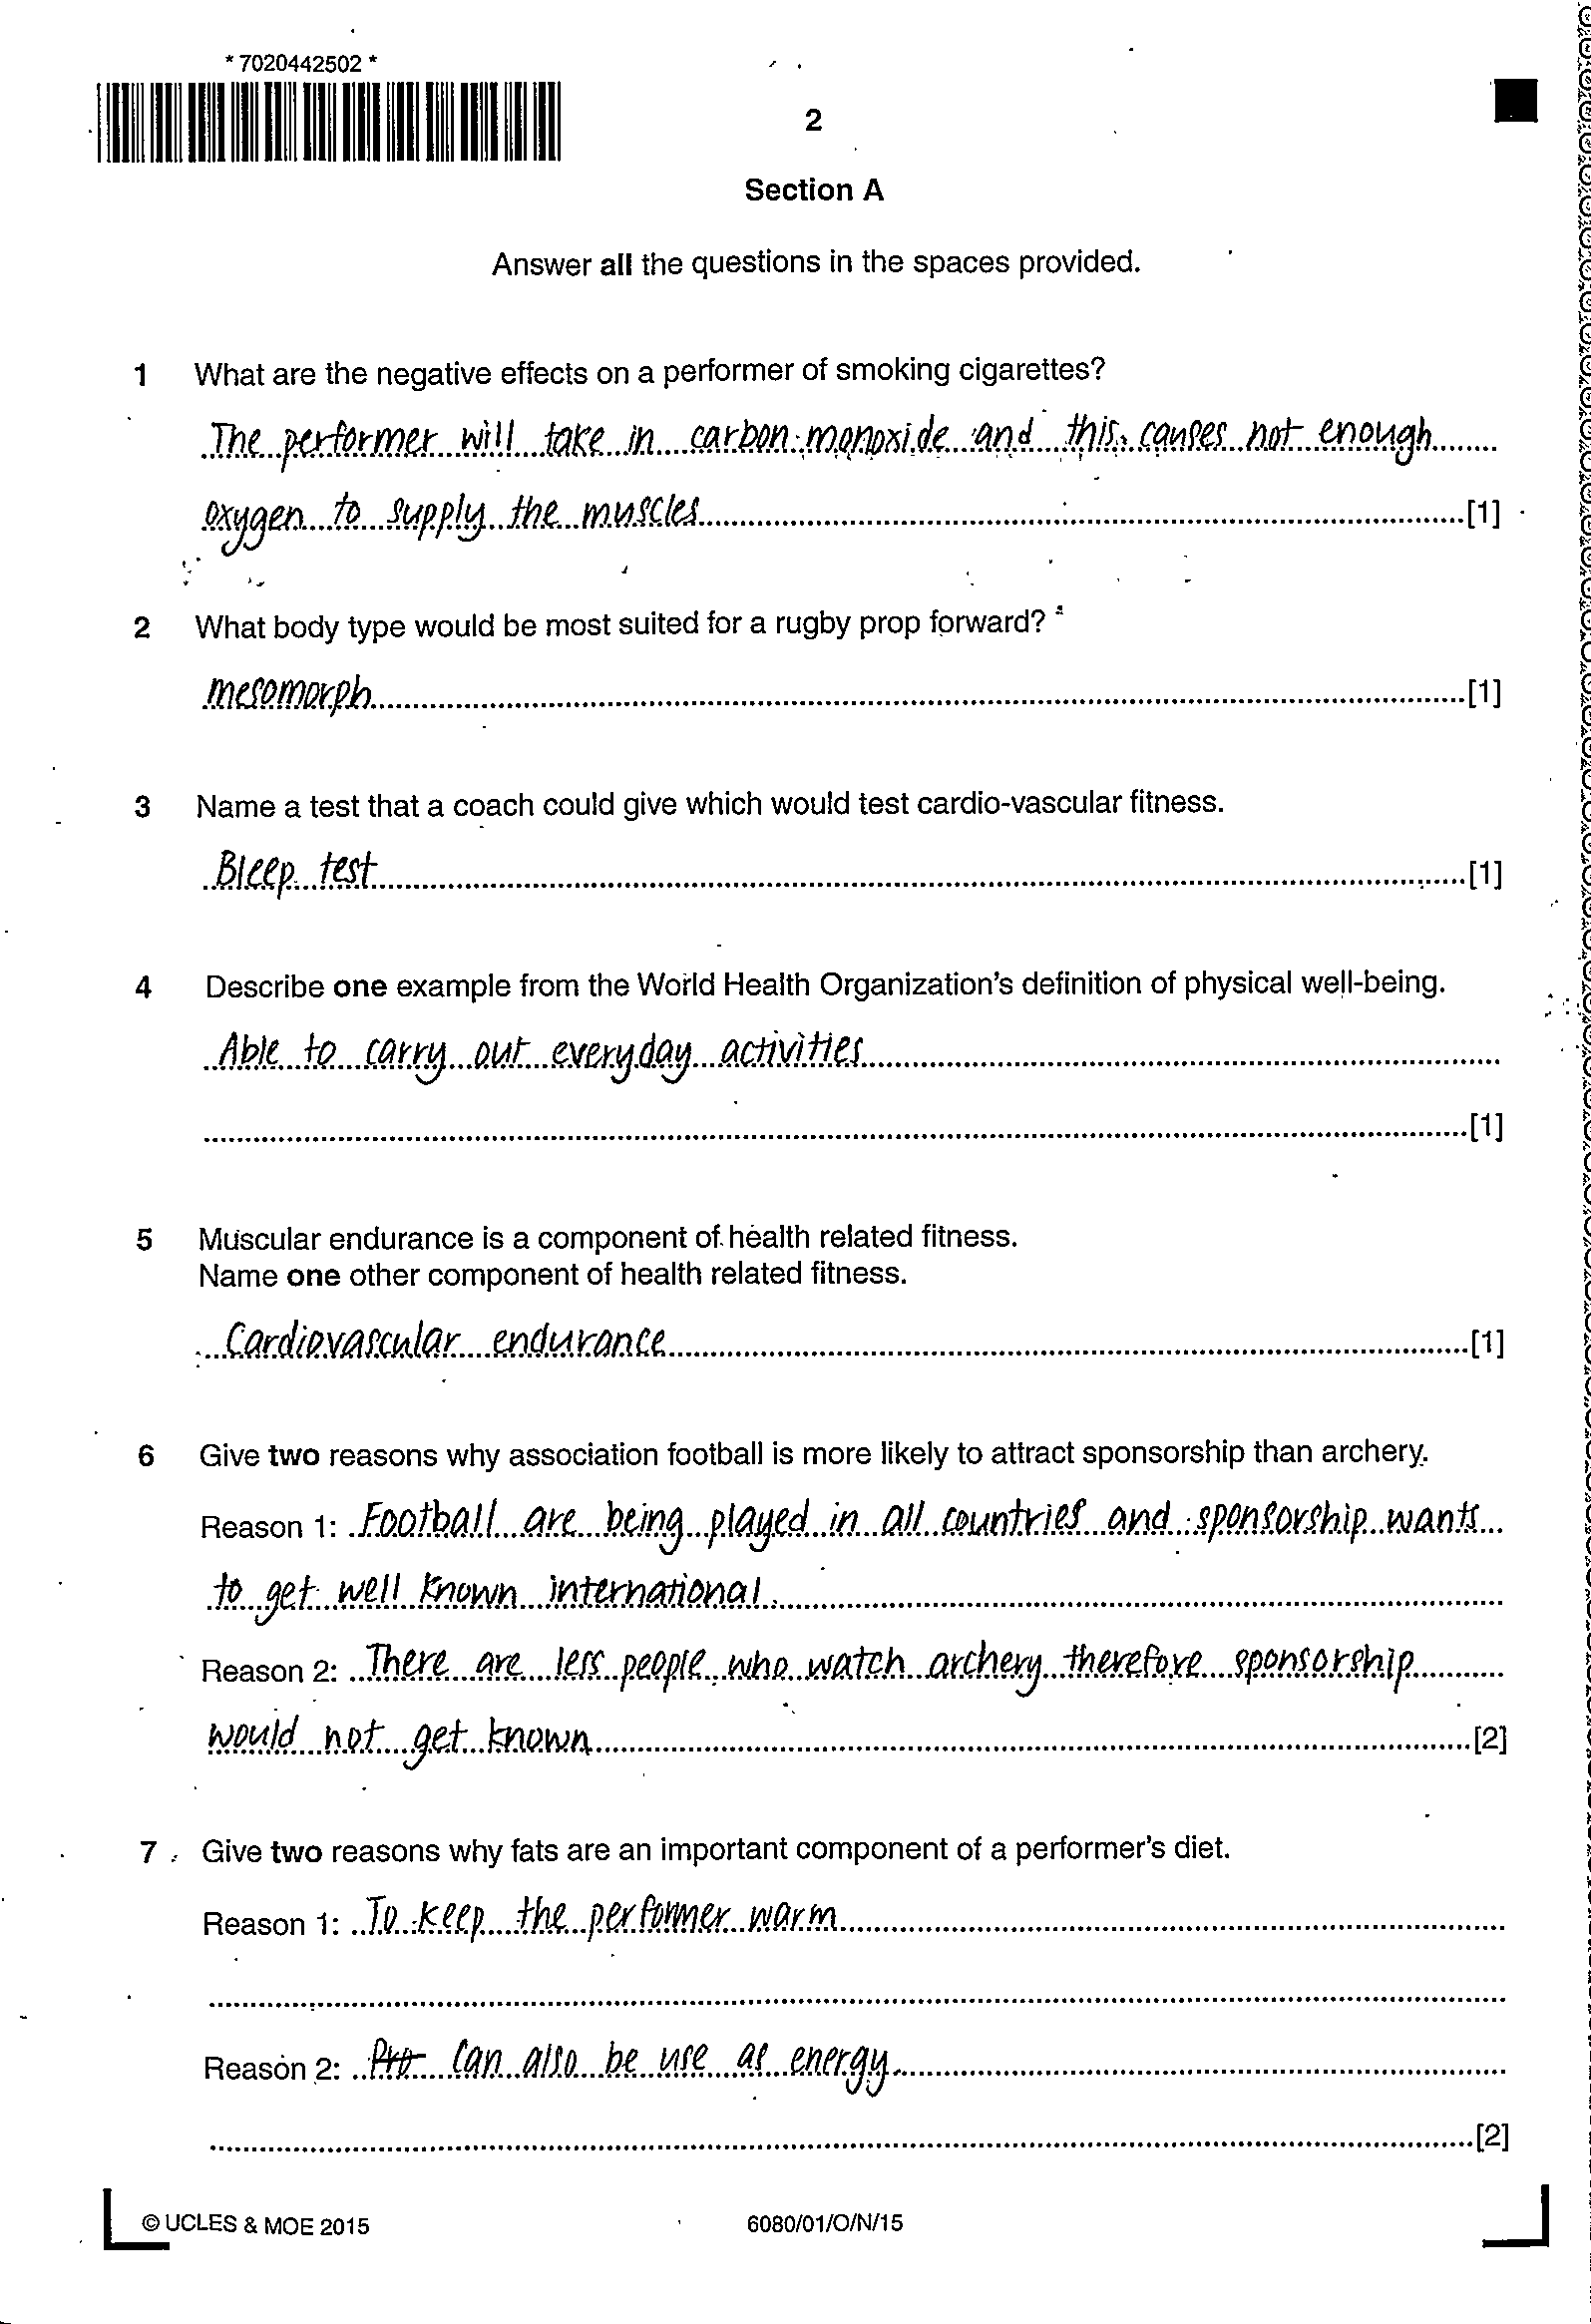 * 7020442502 *
2
Section A
Answer all the questions in the spaces provided.
1 What are the negative effects on a performer of smoking cigarettes?
The performer will take in carbon monoxide and this causes not enough
oxygen to supply the muscles [1]
2 What body type would be most suited for a rugby prop forward?
mesomorph [1]
3 Name a test that a coach could give which would test cardio-vascular fitness.
Bleep test [1]
4 Describe one example from the World Health Organization's definition of physical well-being.
Able to carry out everyday activities
[1]
5 Muscular endurance is a component of health related fitness.
Name one other component of health related fitness.
Cardiovascular endurance [1]
6 Give two reasons why association football is more likely to attract sponsorship than archery.
Reason 1: Football are being played in all countries and sponsorship wants
to get well known international.
Reason 2: There are less people who watch archery therefore sponsorship
would not get known [2]
7 Give two reasons why fats are an important component of a performer's diet.
Reason 1: To keep the performer warm
Reason 2: Pro Can also be use as energy
[2]
© UCLES & MOE 2015
6080/01/O/N/15